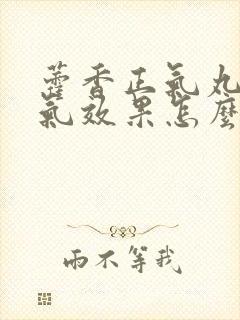 藿香正氣丸
氣效果怎麼
雨不等我